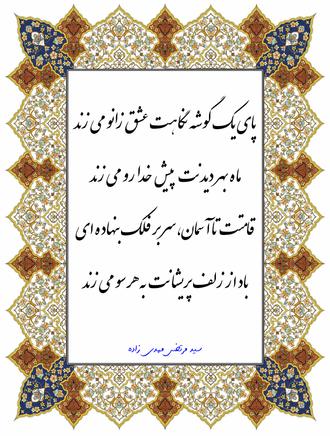 پای یک گوشه نگاهت عشق زانو می زند
ماه بهر دیدنت پیش خدا رو می زند
قامتت تا آسمان، سر بر فلک بنهاده ای
باد از زلف پریشانت به هر سو می زند
سید مرتضی مهدی زاده